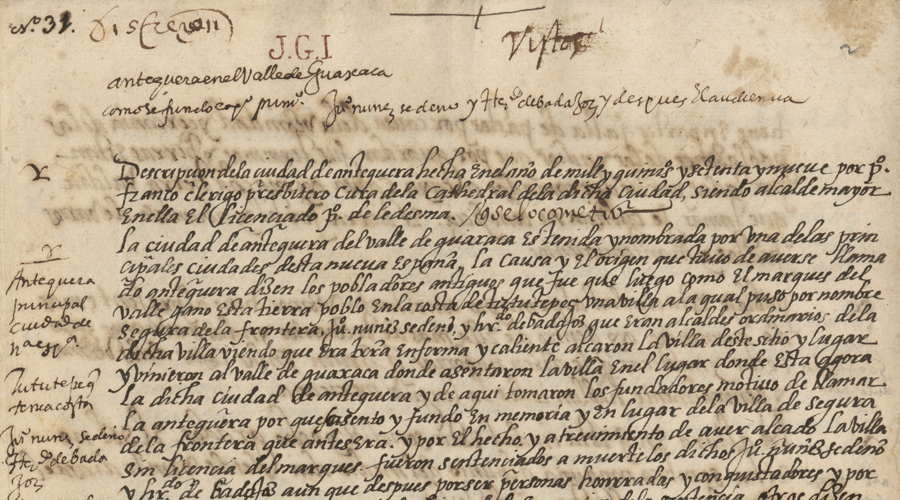 No. 31.
J.G.I
antequera en el Valle de Guaxaca
como se fundo ju.o nuñez sedeno y Her.do de badajoz y despues el audiencia
Descripcion de la ciudad de antequera hecha En el año de mill y quinios y setenta y nueve por p.o
franco clerigo presbitero cura de la cathedral de la dicha ciudad, siendo alcalde mayor
En ella El licenciado p.o de ledesma. /q se lo cometio
la ciudad de antequera del valle de guaxaca es tenida y nombrada por vna de las prin
cipales ciudades desta nueua España, la causa y el origen que tuuo de auerse llama
do antequera disen los pobladores antiguos que fue que luego como el marques del
valle gano esta tierra poblo En la costa de tututepec vna villa a la qual puso por nombre
segura de la frontera, Ju.o nuñes sedeño, y hr.do de badajos que eran alcaldes ordinarios de la
dicha villa viendo que era trra Enferma y caliente alcaron la villa deste sitio y lugar
y vinieron al valle de guaxaca donde asentaron la villa En el lugar donde esta agora
la dicha ciudad de antequera y de aqui tomaron los fundadores motiuo de llamar
la antequera por que asento y fundo En memoria y En lugar de la villa de segura
de la frontera que antes era. y por el hecho y atreuimiento de auer alcado la villa
sin licencia del marques. fueron sentenciados a muerte los dichos ju.o nuñes sedeño
y hr.do de badajos aun que despues por ser personas honrradas y conquistadores y por
Antequera
principal
ciudad de
na esp.a
Tututepeq
tierra costa
Ju.o nunez sedeno
Her.do de bada
Joz